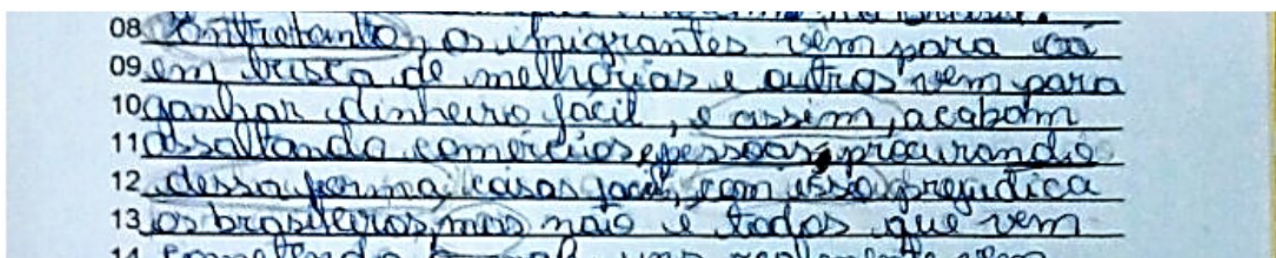 08 Entretanto, os imigrantes vem para cá
09 em busca de melhorias e outros vem para
10 ganhar dinheiro facil, e assim, acabam
11 assaltando comércios, pessoas, procurando
12 dessa forma, coisas facil, com isso prejudica
13 os brasileiros, mas não é todos que vem
14